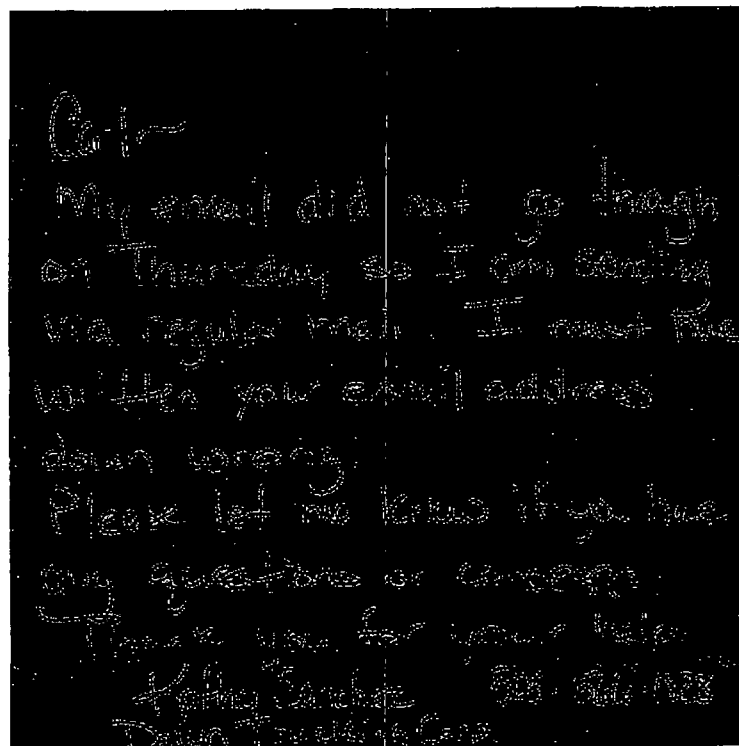 My email did not go though
on Thursday so I am sending
via regular mail. I must have
written your email address
down wrong.
Please let me know if you have
any questions or concerns
Thank you for your help
Kathy Sanchez
Trucking